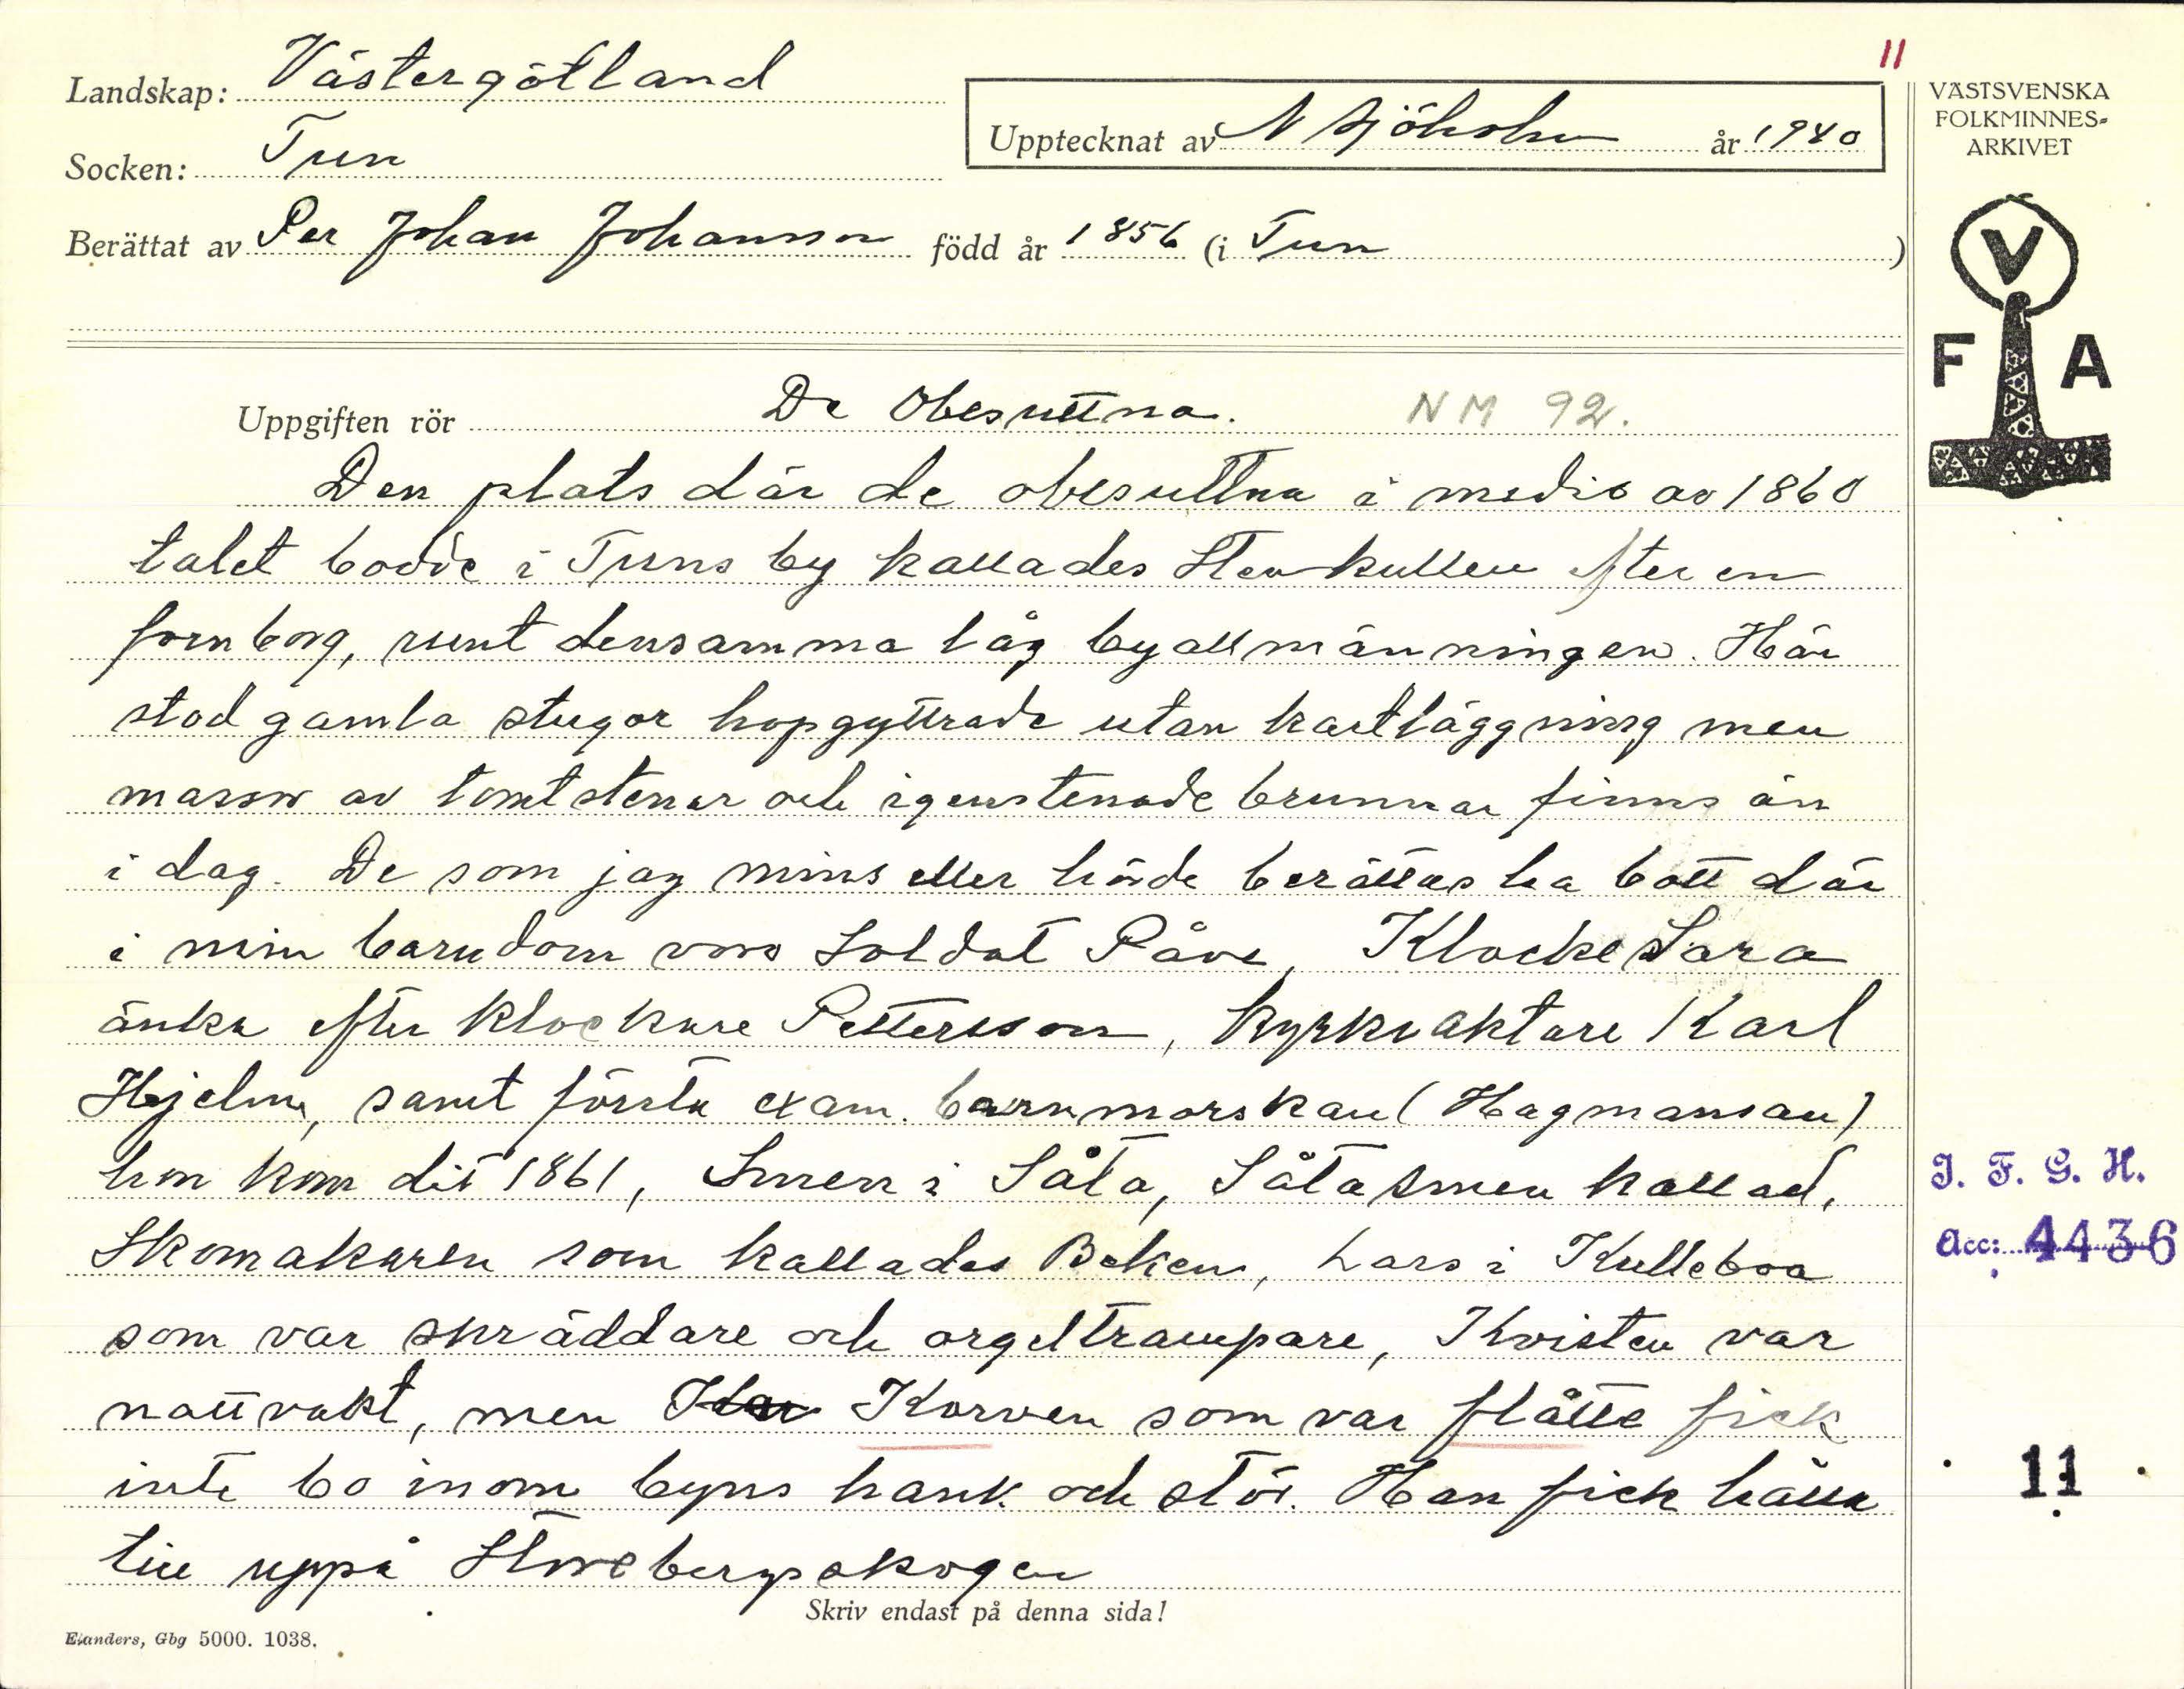 11
Landskap: Västergötland
Socken: Tun
Upptecknat av N Sjöholm år 1940
Berättat av Per Johan Johansson född år 1856 (i Tun )
VÄSTSVENSKA
FOLKMINNES-
ARKIVET
V
F A
Uppgiften rör De Obesuttna. NM 92.
Den plats där de obesuttna i medio av 1860
talet bodde i Tuns by kallades Stenkullen efter en
fornborg, runt densamma låg byallmänningen. Här
stod gamla stugor hopgyttrade utan kartläggning men
massor av tomtstenar och igenstenade brunnar finns än
i dag. De som jag minns eller hörde berättas ha bott där
i min barndom voro Soldat Påve, Klocke Sara
änka efter klockare Pettersson, kyrkvaktare Karl
Hjelm, samt första exam. barnmorskan (Hagmanskan)
hon kom dit 1861, Smen i Såta, Såtasmen kallad,
Skomakaren som kallades Beken, Lars i Kulleboa
som var skräddare och orgeltrampare, Kvisten var
nattvakt, men Korven som var flåtte fick
inte bo inom byns hank och stör. Han fick hålla
till uppå Storebergsskogen
Skriv endast på denna sida!
Elanders, Gbg 5000. 1038.
I. F. G. H.
Acc: 4436
11